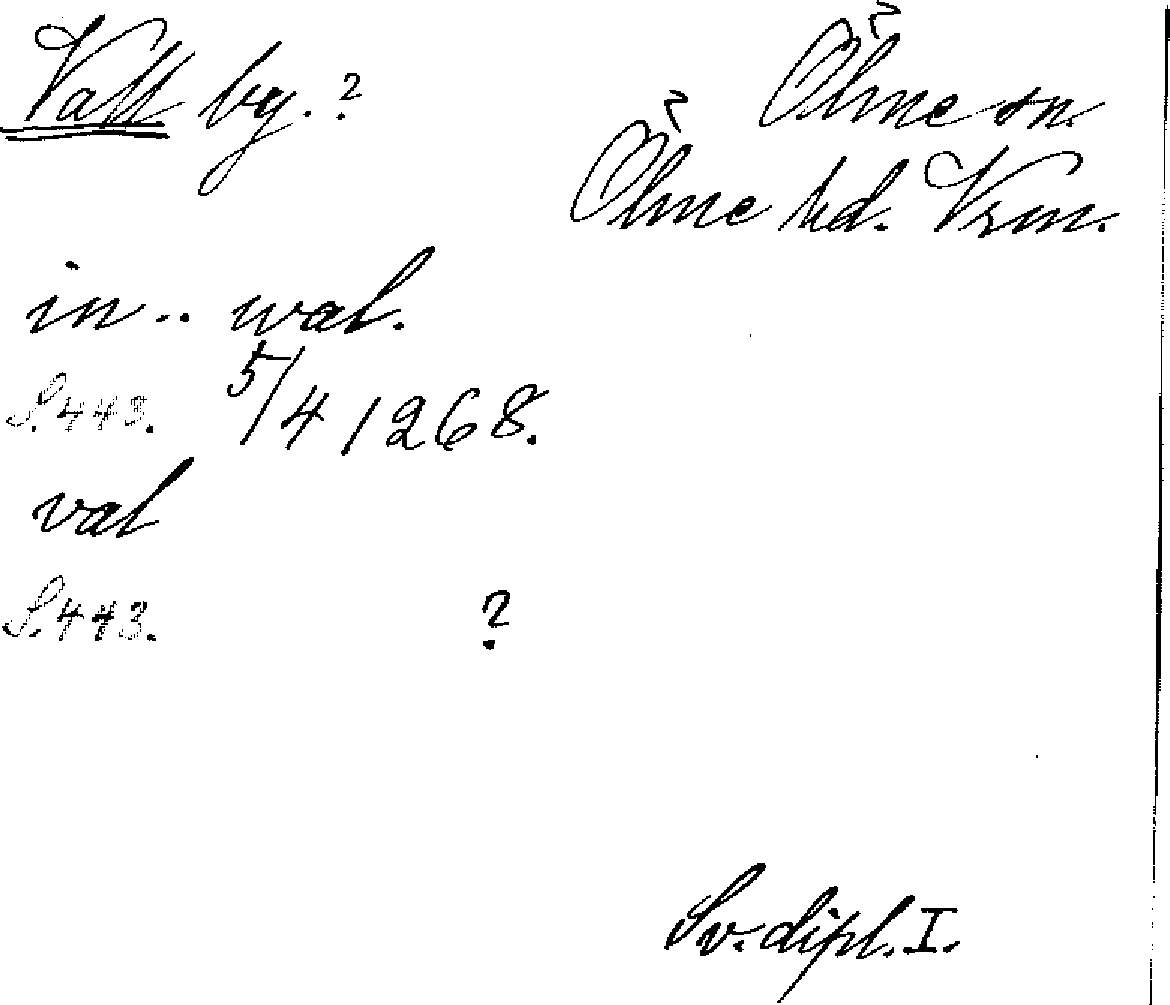 Vall by.?
Ölme sn.
Ölme hd. Vrm.
in .. wal.
S. 443. 5/4 1268.
val
S. 443. ?
Sv. dipl. I.